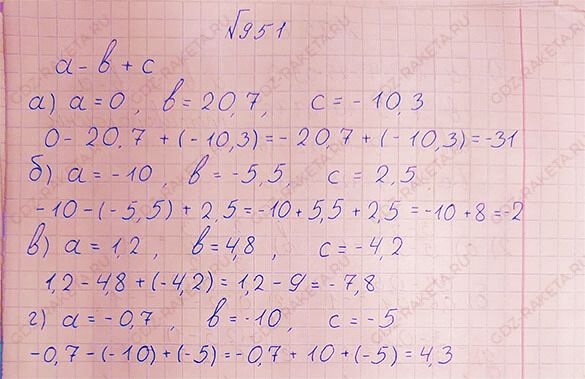 №951
a - b + c
а) a = 0, b = 20,7, c = - 10,3
0 - 20,7 + (- 10,3) = - 20,7 + (- 10,3) = -31
б) a = -10, b = -5,5, c = 2,5
-10 - (-5,5) + 2,5 = -10 + 5,5 + 2,5 = -10 + 8 = -2
в) a = 1,2, b = 4,8, c = -4,2
1,2 - 4,8 + (-4,2) = 1,2 - 9 = - 7,8
г) a = - 0,7, b = -10, c = -5
-0,7 - (-10) + (-5) = -0,7 + 10 + (-5) = 4,3
GDZ-RAKETA.RU